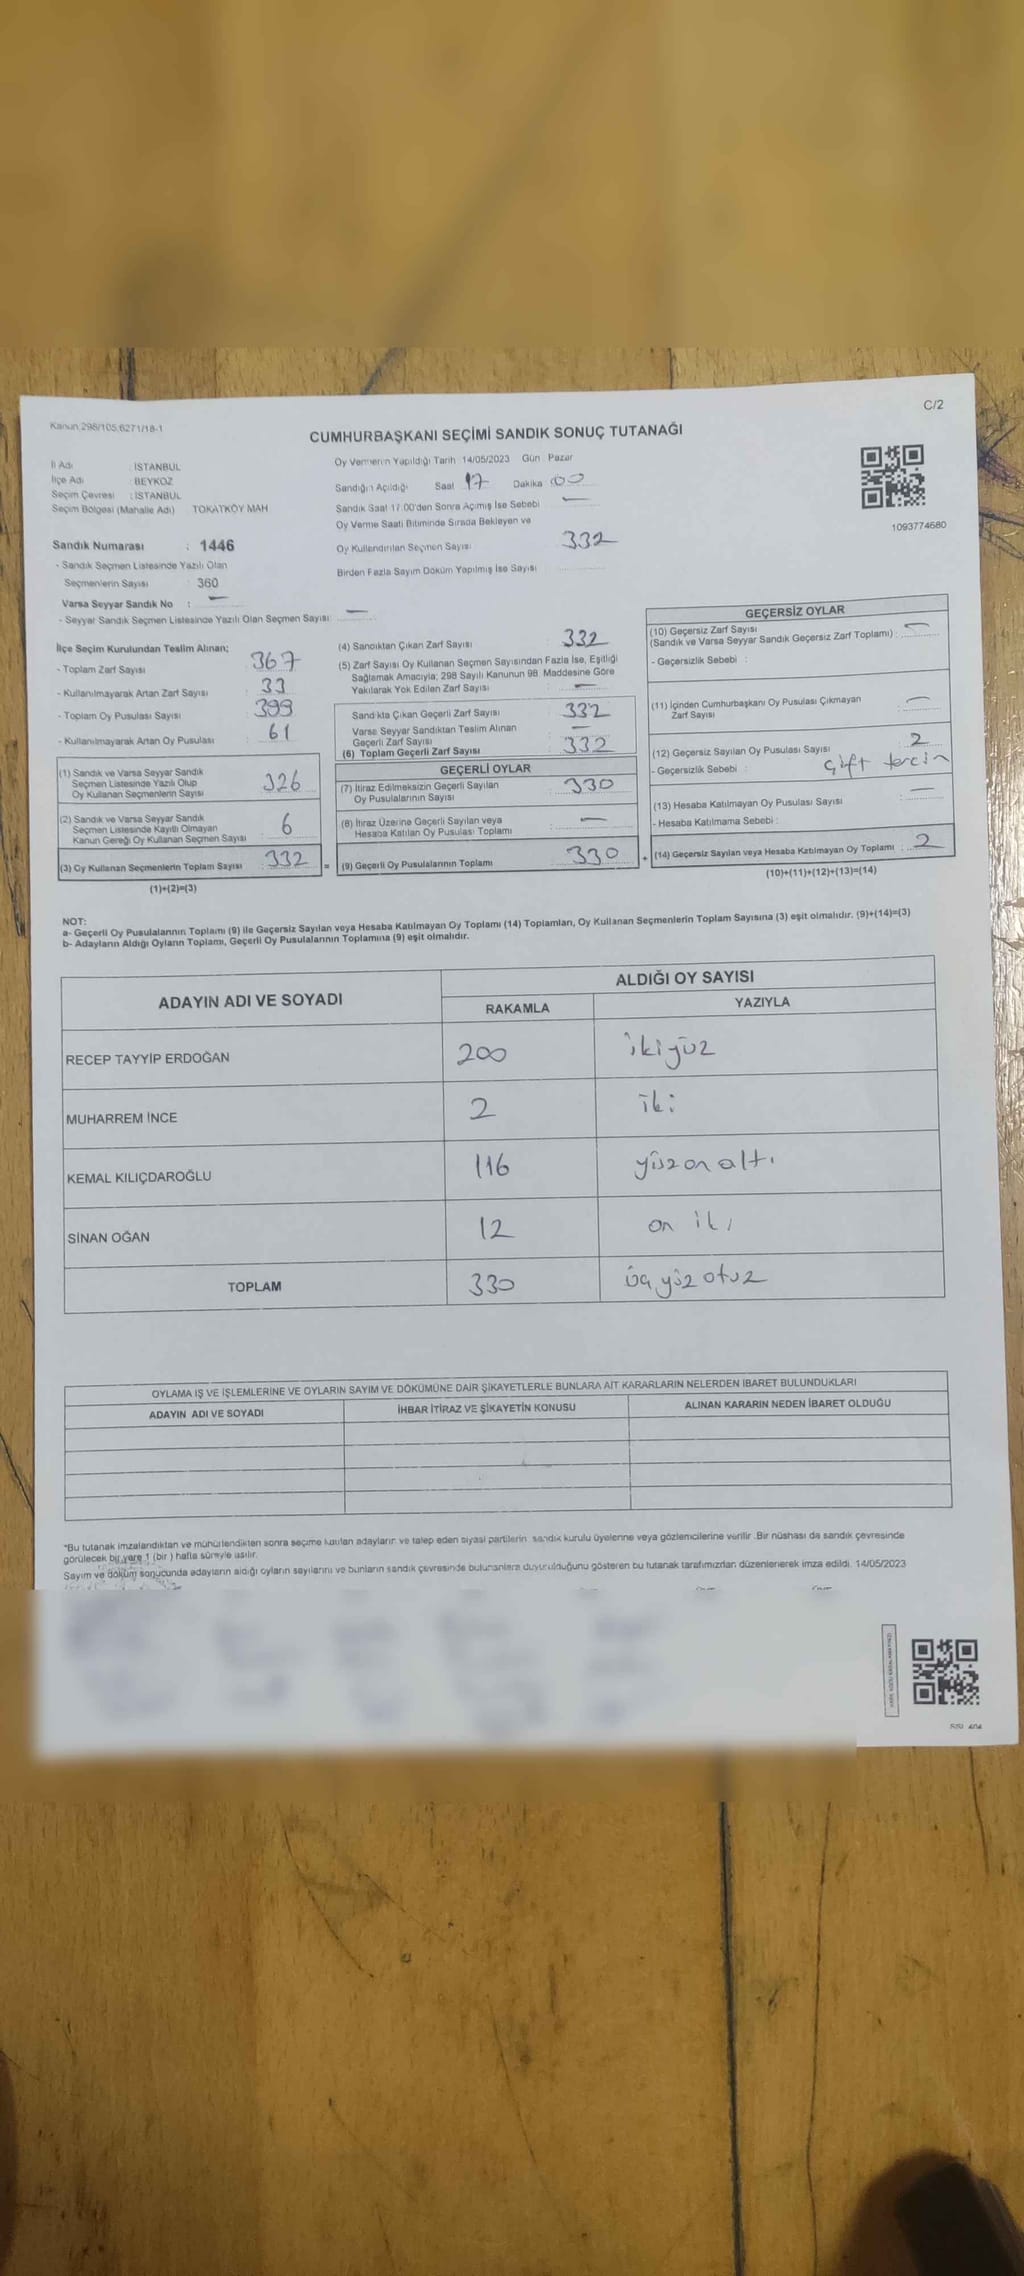 C/2
Kanun 298/105,6271/18-1
CUMHURBAŞKANI SEÇİMİ SANDIK SONUÇ TUTANAĞI
İl Adı : İSTANBUL
İlçe Adı : BEYKOZ
Seçim Çevresi : İSTANBUL
Seçim Bölgesi (Mahalle Adı) TOKATKÖY MAH
Sandık Numarası : 1446
- Sandık Seçmen Listesinde Yazılı Olan
Seçmenlerin Sayısı : 360
Varsa Seyyar Sandık No : —
- Seyyar Sandık Seçmen Listesinde Yazılı Olan Seçmen Sayısı: —
Oy Vermenin Yapıldığı Tarih 14/05/2023 Gün Pazar
Sandığın Açıldığı Saat 17 Dakika 00
Sandık Saat 17:00'den Sonra Açmış İse Sebebi —
Oy Verme Saati Bitiminde Sırada Bekleyen ve
Oy Kullandırılan Seçmen Sayısı 332
Birden Fazla Sayım Döküm Yapılmış İse Sayısı
1093774680
İlçe Seçim Kurulundan Teslim Alınan;
- Toplam Zarf Sayısı : 367
- Kullanılmayarak Artan Zarf Sayısı : 33
- Toplam Oy Pusulası Sayısı : 399
- Kullanılmayarak Artan Oy Pusulası : 61
(1) Sandık ve Varsa Seyyar Sandık
Seçmen Listesinde Yazılı Olup
Oy Kullanan Seçmenlerin Sayısı 326
(2) Sandık ve Varsa Seyyar Sandık
Seçmen Listesinde Kayıtlı Olmayan
Kanun Gereği Oy Kullanan Seçmen Sayısı 6
(3) Oy Kullanan Seçmenlerin Toplam Sayısı : 332
(1)+(2)=(3)
(4) Sandıktan Çıkan Zarf Sayısı : 332
(5) Zarf Sayısı Oy Kullanan Seçmen Sayısından Fazla İse, Eşitliği
Sağlamak Amacıyla; 298 Sayılı Kanunun 98. Maddesine Göre
Yakılarak Yok Edilen Zarf Sayısı : —
Sandıkta Çıkan Geçerli Zarf Sayısı : 332
Varsa Seyyar Sandıktan Teslim Alınan
Geçerli Zarf Sayısı : —
(6) Toplam Geçerli Zarf Sayısı : 332
GEÇERLİ OYLAR
(7) İtiraz Edilmeksizin Geçerli Sayılan
Oy Pusulalarının Sayısı : 330
(8) İtiraz Üzerine Geçerli Sayılan veya
Hesaba Katılan Oy Pusulası Toplamı : —
= (9) Geçerli Oy Pusulalarının Toplamı : 330
GEÇERSİZ OYLAR
(10) Geçersiz Zarf Sayısı
(Sandık ve Varsa Seyyar Sandık Geçersiz Zarf Toplamı) : —
- Geçersizlik Sebebi :
(11) İçinden Cumhurbaşkanı Oy Pusulası Çıkmayan
Zarf Sayısı : —
(12) Geçersiz Sayılan Oy Pusulası Sayısı : 2
- Geçersizlik Sebebi : Çift tercin
(13) Hesaba Katılmayan Oy Pusulası Sayısı : —
- Hesaba Katılmama Sebebi :
+ (14) Geçersiz Sayılan veya Hesaba Katılmayan Oy Toplamı : 2
(10)+(11)+(12)+(13)=(14)
NOT:
a- Geçerli Oy Pusulalarının Toplamı (9) ile Geçersiz Sayılan veya Hesaba Katılmayan Oy Toplamı (14) Toplamları, Oy Kullanan Seçmenlerin Toplam Sayısına (3) eşit olmalıdır. (9)+(14)=(3)
b- Adayların Aldığı Oyların Toplamı, Geçerli Oy Pusulalarının Toplamına (9) eşit olmalıdır.
ADAYIN ADI VE SOYADI ALDIĞI OY SAYISI
RAKAMLA YAZIYLA
RECEP TAYYİP ERDOĞAN 200 ikiyüz
MUHARREM İNCE 2 iki
KEMAL KILIÇDAROĞLU 116 yüzonaltı
SİNAN OĞAN 12 on iki
TOPLAM 330 üçyüz otuz
OYLAMA İŞ VE İŞLEMLERİNE VE OYLARIN SAYIM VE DÖKÜMÜNE DAİR ŞİKAYETLERLE BUNLARA AİT KARARLARIN NELERDEN İBARET BULUNDUKLARI
ADAYIN ADI VE SOYADI İHBAR İTİRAZ VE ŞİKAYETİN KONUSU ALINAN KARARIN NEDEN İBARET OLDUĞU
*Bu tutanak imzalandıktan ve mühürlendikten sonra seçime katılan adayların ve talep eden siyasi partilerin sandık kurulu üyelerine veya gözlemcilerine verilir .Bir nüshası da sandık çevresinde
görülecek bir yere 1 (bir ) hafta süreyle asılır.
Sayım ve döküm sonucunda adayların aldığı oyların sayılarını ve bunların sandık çevresinde bulunanlara duyurulduğunu gösteren bu tutanak tarafımızdan düzenlenerek imza edildi. 14/05/2023